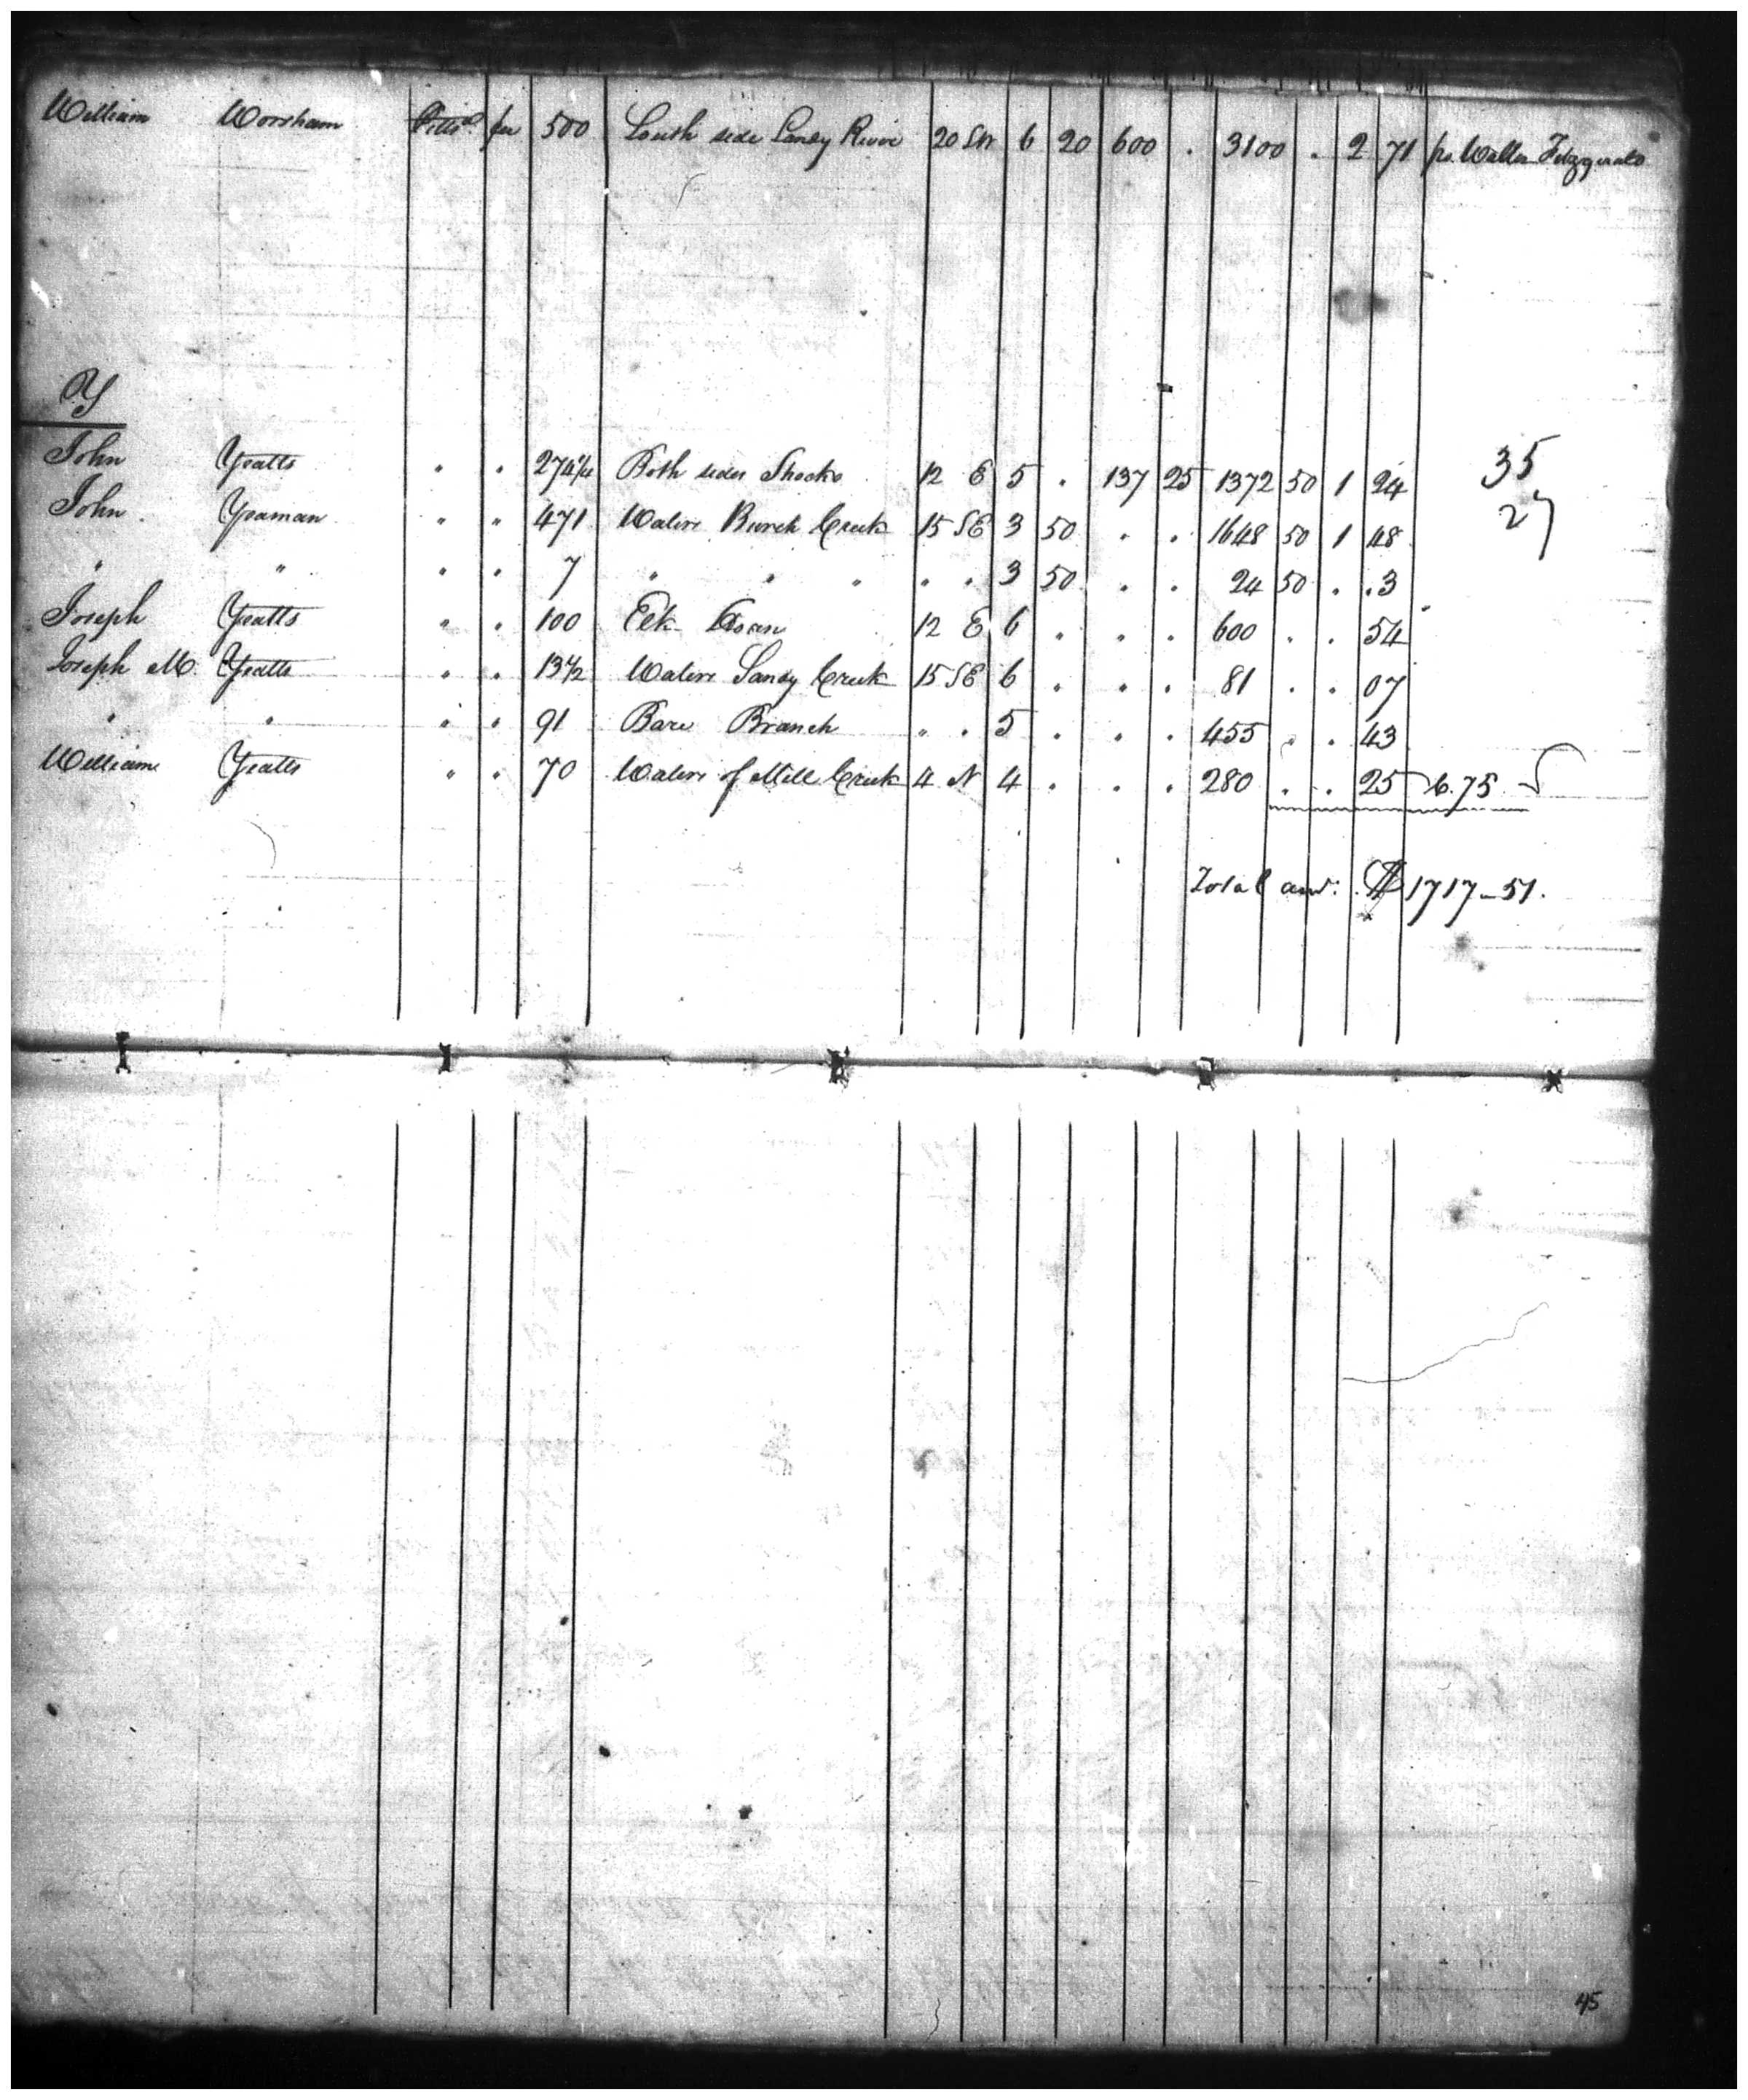 William Worsham Pitts. fee 500 South side Sandy River 20 SW 6 20 600 . 3100 . 2 71 pr. Waller Fitzgerald
Y
John Yeatts " . 274 1/4 Both sides Shocko 12 E 5 . 137 25 1372 50 1 24 35
John Yeaman " " 471 Waters Burch Creek 15 SE 3 50 . . 1648 50 1 48 27
" " " . 7 " " " " . 3 50 . . 24 50 . .3
Joseph Yeatts " . 100 12 E 6 . . . 600 . . 54
Joseph M. Yeatts " . 13 1/2 Waters Sandy Creek 15 SE 6 . . . 81 . . 07
" " " . 91 Bare Branch " . 5 . . . 455 . . 43
William Yeatts " . 70 Waters of Mill Creek 4 N 4 . . . 280 . . 25 6.75
Total amt: $1717-51.
45